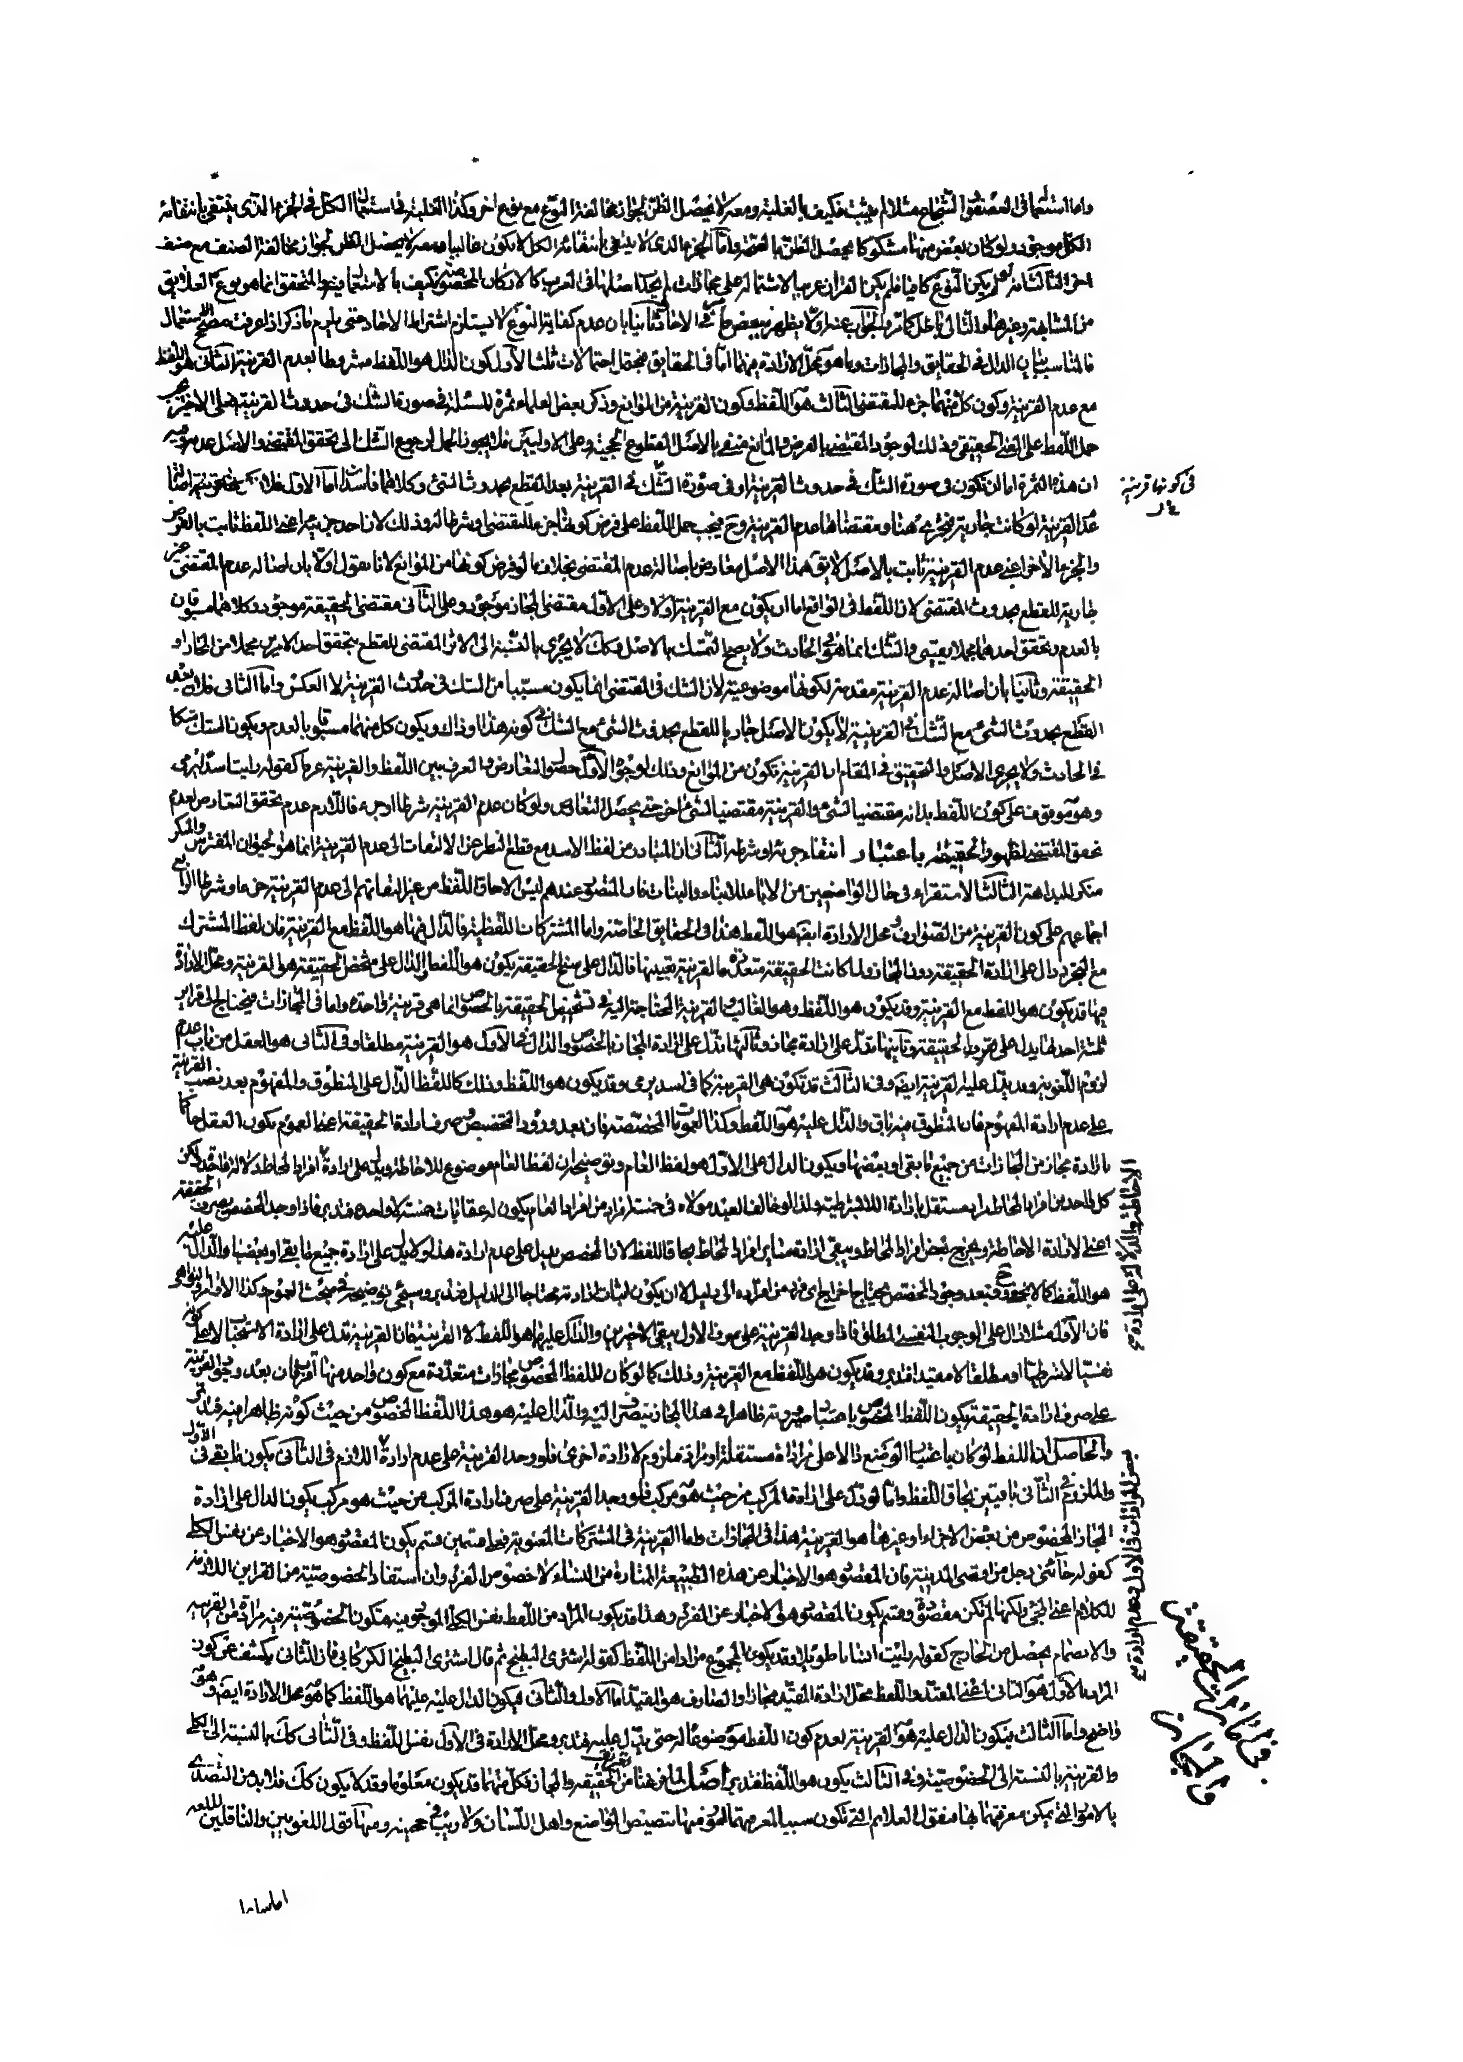 واما استعمال العصفور الشجاع مثلا لم يثبت فكيف بالغلبة ومعه لا يحصل الظن بجواز مخالفة النوع مع نوع اخر وكذا الغلبة في استعمال الكل في الجزء الذي ينتفي بانتفائه
الكل موجود ولو كان بعض منها مشكوكا يحصل الظن بالغلبة واما الجزء الذي لا ينتفي بانتفائه الكل لا يكون غالبا ومعه لا يحصل الظن بجواز مخالفة الصنف مع صنف
اخر الثالث انه لو لم يكن النوع كافيا فلم يكن القران عربيا لاشتماله على مجازات لم يوجد امثلها في العرب
من المشابهة وغيرها والتالي باطل كما مر والجواب عنه اولا يظهر ببعض ما مر في الاخاد وثانيا بان عدم كفاية النوع لا يستلزم اشتراط الاخاد حتى يلزم ما ذكر اذا عرفت مصحح الاستعمال
فالمناسب بيان الدال في الحقايق والمجازات وما هو محل الارادة منهما اما في الحقايق فيحتمل احتمالات ثلثة الاول كون الدال هو اللفظ مشروطا بعدم القرينة الثاني هو اللفظ
مع عدم القرينة وكون كل منهما جزء للمقتضي الثالث هو اللفظ وكون القرينة من الموانع وذكر بعض العلماء ثمرة للمسئلة في صورة الشك في حدوث القرينة فعلى الاخير يجب
حمل اللفظ على المعنى الحقيقي وذلك لوجود المقتضي بالفرض والمانع منفي بالاصل المقطوع الحجية وعلى الاوليين فلا يجوز الحمل لرجوع الشك الى تحقق المقتضي والاصل عدمه وفيه
ان هذه الثمرة اما ان تكون في صورة الشك في حدوث القرينة او في صورة الشك في القرينة بعد القطع بحدوث الشئ وكلاهما فاسد اما الاول فلان
في كونها قرينة
عدم القرينة لو كانت جارية فتجري هنا ومقتضاها عدم القرينة وح فيجب حمل اللفظ على فرض كونها جزء للمقتضي او شرطا له وذلك لان احد جزئيه اعني اللفظ ثابت بالفرض
والجزء الاخر اعني عدم القرينة ثابت بالاصل لا يق هذا الاصل معارض باصالة عدم المقتضي بخلاف ما لو فرض كونها من الموانع لانا نقول اولا بان اصالة عدم المقتضي غير
جارية للقطع بحدوث المقتضي لان اللفظ في الواقع اما ان يكون مع القرينة او لا وعلى الاول مقتضي المجاز موجود وعلى الثاني مقتضي الحقيقة موجود وكلاهما مسبوقان
بالعدم وتحقق احدهما مجملا يقيني والشك انما هو في الحادث ولا يصح التمسك بالاصل فكك لا يجري بالنسبة الى الاثر المقتضي للقطع بتحقق احد الامرين مجملا من المجاز او
الحقيقة وثانيا بان اصالة عدم القرينة مقدمة لكونها موضوعية لان الشك في المقتضي انما يكون مسببا من الشك في حدوث القرينة لا العكس واما الثاني فلان بعض
القطع بحدوث الشئ مع الشك في القرينة لا يكون الاصل جاريا للقطع بحدوث الشئ مع الشك في كونه هذا او ذاك ويكون كل منهما مسبوقا بالعدم ويكون الشك شكا
في الحادث ولا يجري الاصل والتحقيق في المقام ان القرينة تكون من الموانع وذلك لوجوه الاول حصول التعارض في العرف بين اللفظ والقرينة عرفا كقوله رايت اسدا يرمي
وهو موقوف على كون اللفظ بذاته مقتضيا لشئ والقرينة مقتضيا لشئ اخر حتى يحصل التعارض ولو كان عدم القرينة شرطا او جزء فاللازم عدم تحقق التعارض لعدم
تحقق المقتضي لظهور الحقيقة باعتبار انتفاء جزئه او شرطه الثاني ان المتبادر من لفظ الاسد مع قطع النظر عن الالتفات الى عدم القرينة انما هو الحيوان المفترس والمنكر
منكر للبداهة الثالث الاستقراء في حال الواضعين من الاباء للابناء والبنات فان المقصود عندهم ليس الا حاق اللفظ من غير التفاتهم الى عدم القرينة جزءا او شرطا الرابع
اجماعهم على كون القرينة من الصوارف ومحل الارادة ايضا هو اللفظ هذا في الحقايق الخاصة واما المشتركات اللفظية فالدال فيها هو اللفظ مع القرينة فان لفظ المشترك
مع التجرد دال على ارادة الحقيقة دون المجاز ولما كانت الحقيقة متعددة فالقرينة تعينها فالدال على سنخ الحقيقة يكون هو اللفظ والدال على شخص الحقيقة هي القرينة ومحل الارادة
فيها قد يكون هو اللفظ مع القرينة وقد يكون هو اللفظ وهو الغالب والقرينة المحتاجة اليه في تشخيص الحقيقة بالخصوص انما هي قرينة واحدة واما في المجازات فيحتاج الى قراين
ثلثة احدها يدل على صرف الحقيقة وثانيها تدل على ارادة مجاز وثالثها تدل على ارادة المجاز بالخصوص والدال في الاول هو القرينة مطلقا وفي الثاني هو العقل من باب عدم
لزوم اللغوية وقد يدل عليه القرينة ايضا وفي الثالث قد تكون هي القرينة كما في اسد يرمي وقد يكون هو اللفظ وذلك كاللفظ الدال على المنطوق والمفهوم بعد نصب القرينة
على عدم ارادة المفهوم فان المنطوق منه باق والدال عليه هو اللفظ وكذا العمومات المخصصة فان بعد ورود التخصيص وصرف ارادة الحقيقة اعني العموم يكون العقل حاكما
بارادة مجاز من المجازات من جميع ما بقي او بعضها ويكون الدال على الاول هو لفظ العام وتوضيحه ان لفظ العام موضوع للاحاطة ويدل على ارادة افراد المحاط دلالة واحدة لكن
كل واحد من افراد المحاط مراد مستقل بارادة ولذا لو خالف العبد مولاه في خمسة افراد من افراد العام يكون له عقابات خمسة كل واحد فاذا وجد المخصص يصرف الحقيقة
اعني لارادة الاحاطة ويخرج بعض افراد المحاط ويبقى ارادة ساير افراد المحاط بحاق اللفظ لان المخصص يدل على عدم ارادة هذا ولا يدل على ارادة جميع ما بقي او بعضها والدال عليه
هو اللفظ كما لا يخفى فبعد وجود المخصص يحتاج اخراج اي فرد من افراده الى دليل لا ان يكون اثبات ارادته محتاجا الى الدليل فتدبر وسيجئ توضيحه في مبحث العموم وكذا الاوامر والنواهي
فان الاول مثلا دال على الوجوب النفسي المطلق فاذا وجد القرينة على صرف الاول يبقى الاخيرين والدال عليهما هو اللفظ لا القرينة فان القرينة تدل على ارادة الاستحباب لا على كونه
نفسيا لا شرطيا او مطلقا لا مقيدا فتدبر وقد يكون هو اللفظ مع القرينة وذلك كما لو كان للفظ المخصوص مجازات متعددة مع كون واحد منها اقرب فان بعد وجود القرينة
على صرف ارادة الحقيقة يكون اللفظ المخصوص باعتبار صيرورته ظاهرا في هذا المجاز ينصرف اليه والدال عليه هو هذا اللفظ المخصوص من حيث كونه ظاهرا فيه فتدبر
والحاصل ان اللفظ لو كان باعتبار الوضع دالا على ارادة مستقلة او ارادة ملزوم لارادة اخرى فلو وجد القرينة على عدم ارادة اللازم في الثاني يكون ما بقي في الاول
والملزوم في الثاني ثابتين بحاق اللفظ واما لو دل على ارادة المركب من حيث هو مركب فلو وجد القرينة على صرف ارادة المركب من حيث هو مركب يكون الدال على ارادة
المجاز المخصوص من بعض الاجزاء او غيرها هو القرينة هذا في المجازات واما القرينة في المشتركات المعنوية فعلى قسمين قسم يكون المقصود هو الاخبار عن نفس الكلي
كقوله جائني رجل من اقصى المدينة فان المقصود هو الاخبار عن هذه الطبيعة الممتازة من النساء لا خصوص الفرد وان استفاد الخصوصية من القراين اللازمة
للكلام اعني المجئ ولكنها لم تكن مقصودة وقسم يكون المقصود هو الاخبار عن الفرد وهذا قد يكون المراد من اللفظ نفس الكلي الموجود فيه فتكون الخصوصية فيه مرادة من القرينة
والانضمام يحصل من الخارج كقوله رايت انسانا طويلا وقد يكون المجموع مرادا من اللفظ كقوله اشتر البطيخ ثم قال اشتر البطيخ الكركابي فان الثاني يكشف عن كون
المراد من الاول هو الثاني اعني المقيد واللفظ محل ارادة المقيد مجازا والصارف هو القيد اما الاول والثاني فيكون الدال عليه عليهما هو اللفظ كما هو محل الارادة ايضا وهو
واضح واما الثالث فيكون الدال عليه هو القرينة لعدم كون اللفظ موضوعا له حتى يدل عليه فتدبر ومحل الارادة في الاول نفس اللفظ وفي الثاني كك بالنسبة الى الكلي
والقرينة بالنسبة الى الخصوصية وفي الثالث يكون هو اللفظ فتدبر اصل لما فرغنا من تعريف الحقيقة والمجاز فكل منهما قد يكون معلوما وقد لا يكون كك فلا بد من التصدي
بالامور التي يمكن معرفتهما بها فنقول العلائم التي تكون سببا لمعرفتهما امور منها تنصيص الواضع واهل اللسان ولا ريب في حجيته ومنها نقل اللغويين والناقلين للغة
في امارات الحقيقة
والمجاز